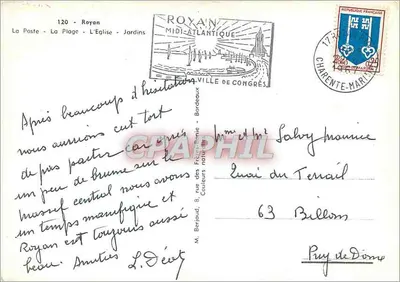 120 - Royan
La Poste - La Plage - L'Eglise - Jardins
ROYAN
MIDI-ATLANTIQUE
VILLE DE CONGRÈS
REPUBLIQUE FRANÇAISE
CHARENTE-MARITIME
Après beaucoup d'hésitation
nous aurions eut tort
de pas partir car après
un peu de brume sur le
Massif central nous avons
un temps manifique et
Royan est toujours aussi
beau. Amitiés
M. Berjaud, 8, rue des Frères - Bordeaux
Couleurs
CARTE
CPAPHIL
Salvy Maurice
Quai du Terrail
63 Billom
Puy de Dome